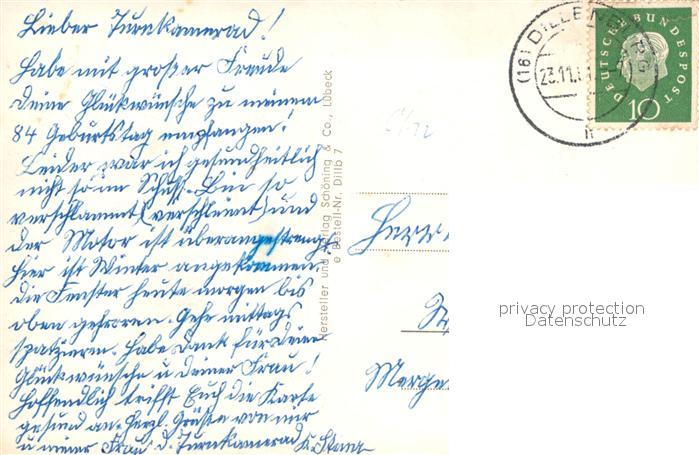 Lieber Turnkamerad!
Habe mit großer Freude
Deine Glückwünsche zu meinem
84 Geburtstag empfangen!
Leider war ich gesundheitlich
nicht so im Schuß. Bin so
verschlammt (verschleimt) und
der Motor ist überangestrengt.
Hier ist Winter angekommen.
Die Fenster heute morgen bis
oben gefroren. Gehe mittags
spatzieren. Habe Dank für Deine
Glückwünsche u Deiner Frau!
Hoffendlich trifft Euch die Karte
gesund an. Herzl. Grüße von mir
u meiner Frau. D. Turnkamerad
Hersteller und Verlag Schöning & Co., Lübeck
Bestell-Nr. Dillb 7
(16) DILLENBURG
23.11.
h
DEUTSCHE BUNDESPOST
10
Herrn
Merge
privacy protection
Datenschutz